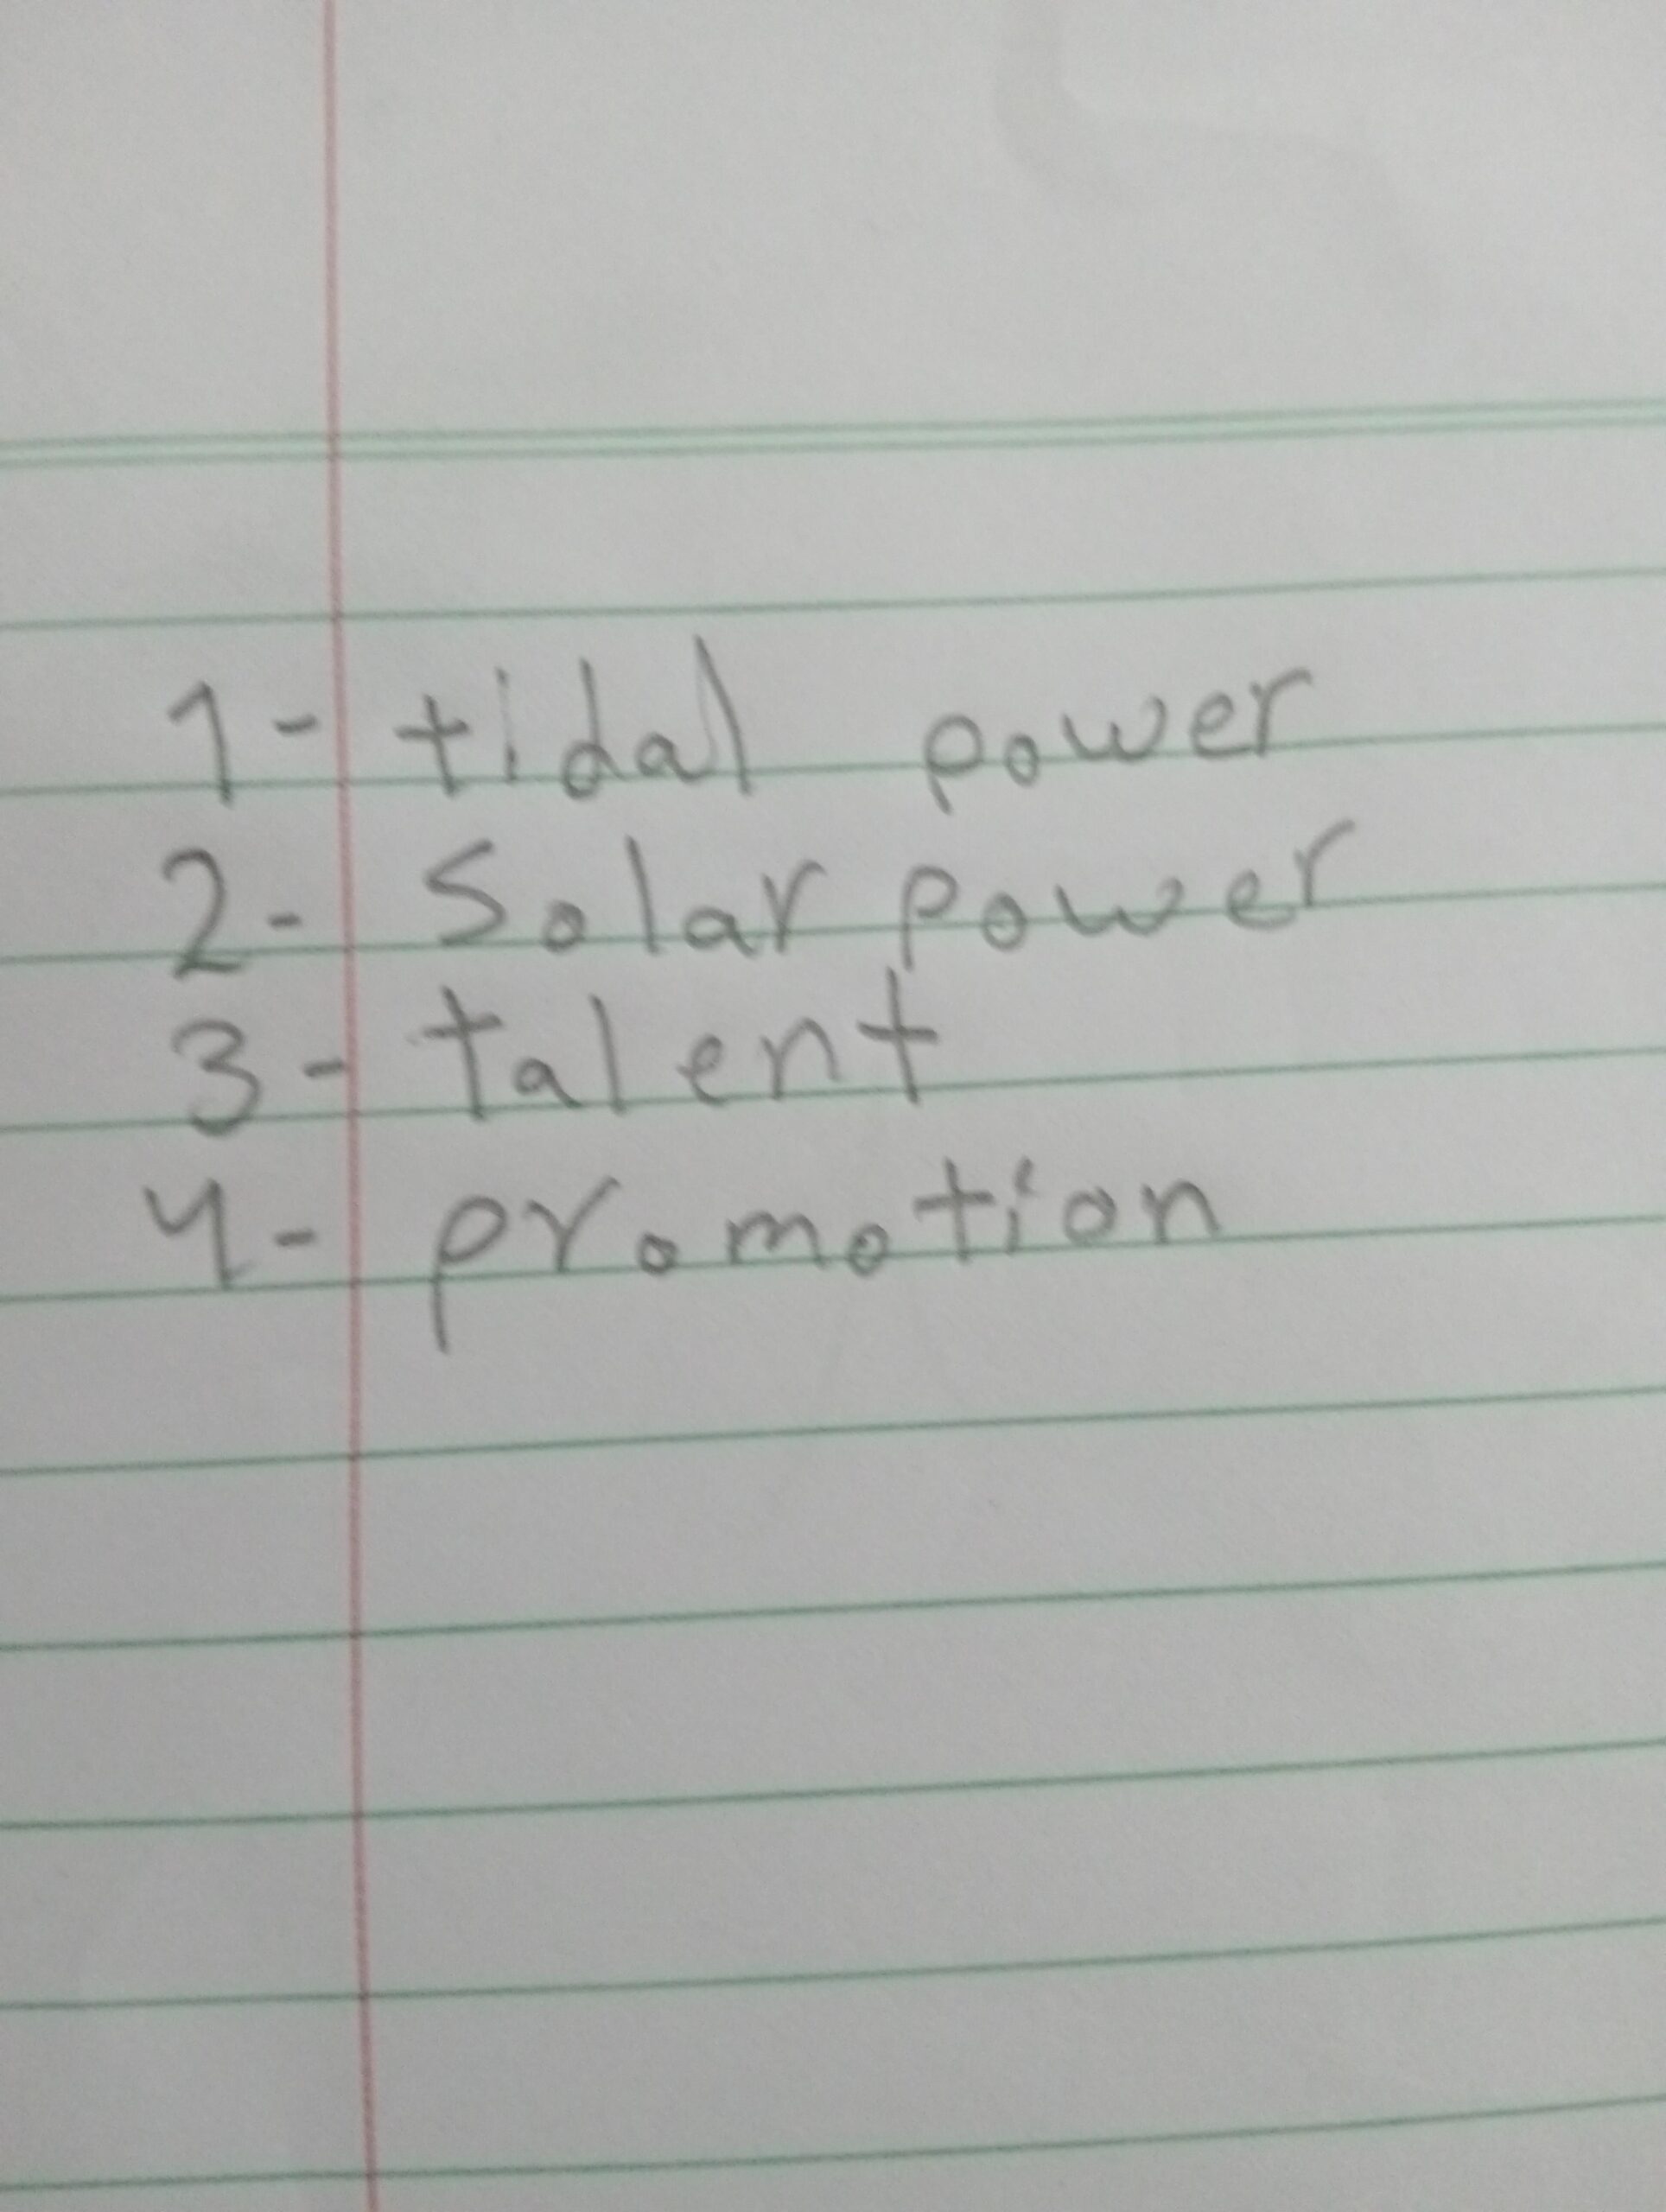 1- tidal power
2- Solar power
3- talent
4- promotion